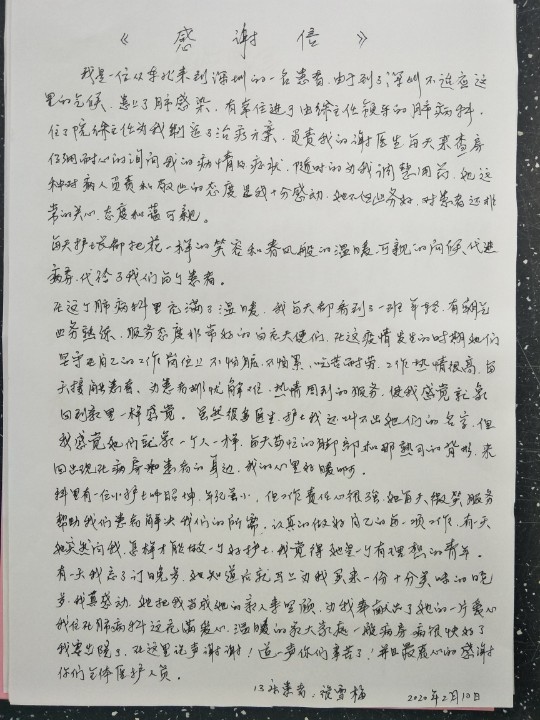 《 感 谢 信 》
我是一位从东北来到深圳的一名患者,由于到了深圳不适应这
里的气候,患上了肺感染,有幸住进了由徐主任领导的肺病科,
住了院徐主任为我制定了治疗方案,负责我的谢医生每天来查房
仔细耐心的询问我的病情及症状,随时的为我调整用药,她这
种对病人负责和敬业的态度是我十分感动,她不但业务好,对患者还非
常的关心,态度和蔼可亲。
每天护士长都把花一样的笑容和春风般的温暖,可亲的问候,代进
病房,代给了我们每个患者。
在这个肺病科里充满了温暖,我每天都看到了一班年轻,有朝气
业务熟练,服务态度非常好的白衣天使们,在这疫情发生的时期她们
坚守在自己的工作岗位上不怕脏,不怕累,吃苦耐劳,工作热情很高,每
天接触患者,为患者排忧解难,热情周到的服务,使我感觉就象
回到家里一样感觉。虽然很多医生,护士我还叫不出她们的名字,但
我感觉她们就象一个人一样,每天匆忙的脚步和那熟习的背影,来
回出现在病房和患者的身边,我的心里好暖啊。
科里有一位小护士叫昭坤,年纪虽小,但工作责任心很强,她每天微笑服务
帮助我们患者解决我们的所需,认真的做好自己的每一项工作,有一天
她突然问我,怎样才能做一个好护士,我觉得她是一个有理想的青年。
有一天我忘了订晚歺,她知道后就马上为我买来一份十分美味的晚
歺,我真感动,她把我当成她的亲人来照顾,为我奉献出了她的一片爱心
我住在肺病科这充满爱心,温暖的家大家庭一般病房病很快好了
我要出院了,在这里说声谢谢!道一声你们辛苦了!并且最衷心的感谢
你们全体医护人员。
13床患者:
2020年2月10日